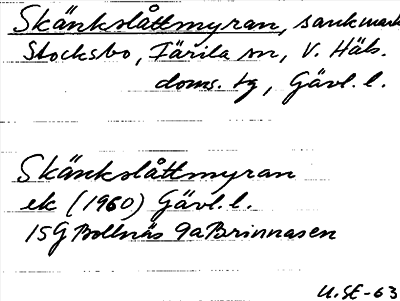 Skänkslåttmyran, sankmark
Stocksbo, Färila sn, V. Häls.
doms. tg, Gävl. l.
Skänkslåttmyran
ek (1960) Gävl. l.
15G Bollnäs 9a Brinnåsen
U.SE-63